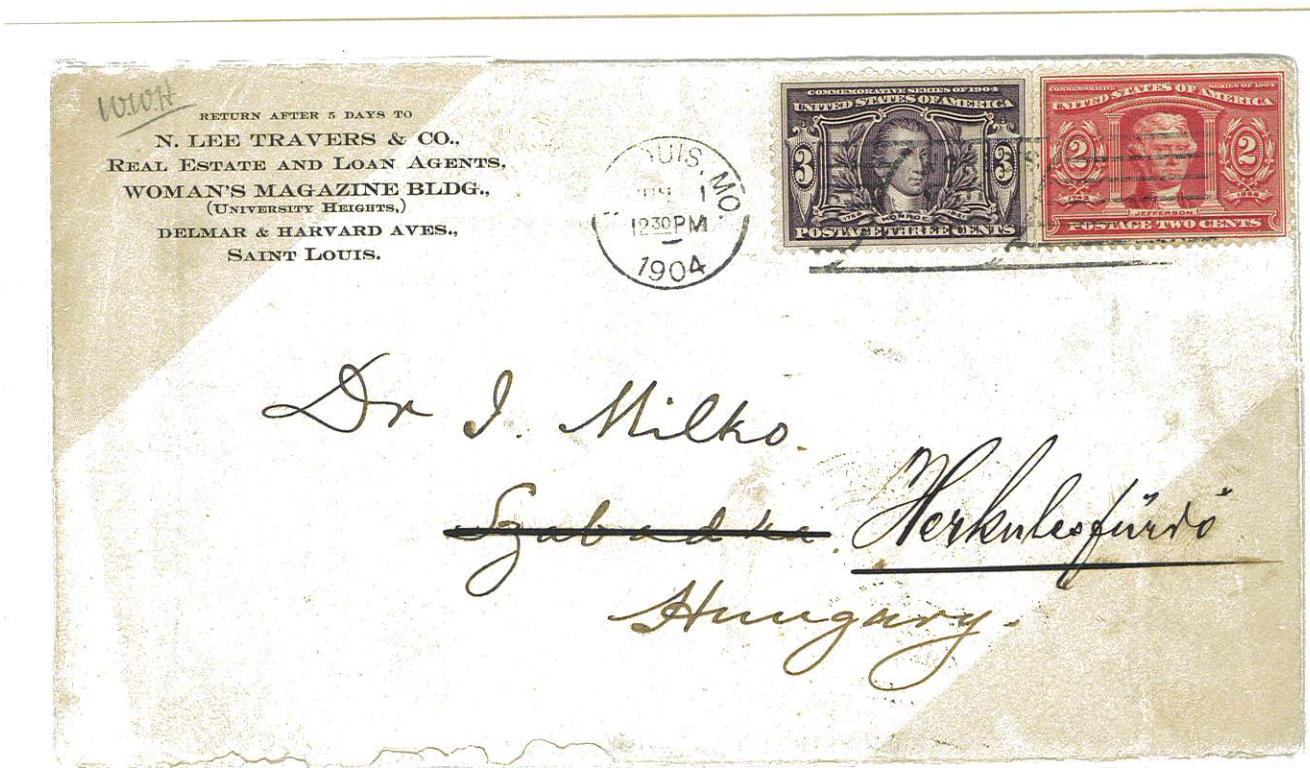 W.W.H
RETURN AFTER 5 DAYS TO
N. LEE TRAVERS & CO.,
REAL ESTATE AND LOAN AGENTS,
WOMAN'S MAGAZINE BLDG.,
(UNIVERSITY HEIGHTS,)
DELMAR & HARVARD AVES.,
SAINT LOUIS.
OUIS, MO.
1
12 30 PM
1904
COMMEMORATIVE SERIES OF 1904
UNITED STATES OF AMERICA
3 3
MONROE
POSTAGE THREE CENTS
COMMEMORATIVE SERIES OF 1904
UNITED STATES OF AMERICA
2 2
JEFFERSON
POSTAGE TWO CENTS
Dr J. Milko.
Szabadka. Herkulesfürdő
Hungary.